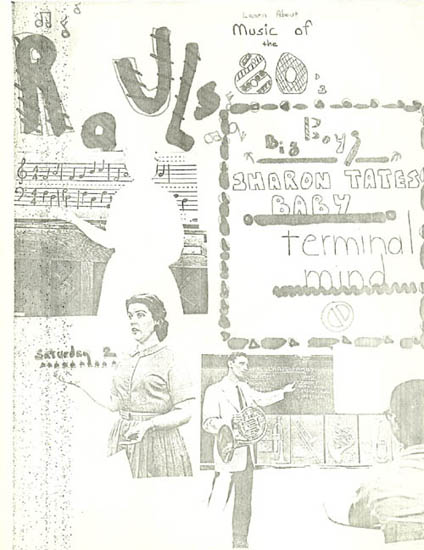 Learn About
Music of
the
80's
Raul's
Big Boys
SHARON TATES
BABY
terminal
mind
Saturday 2